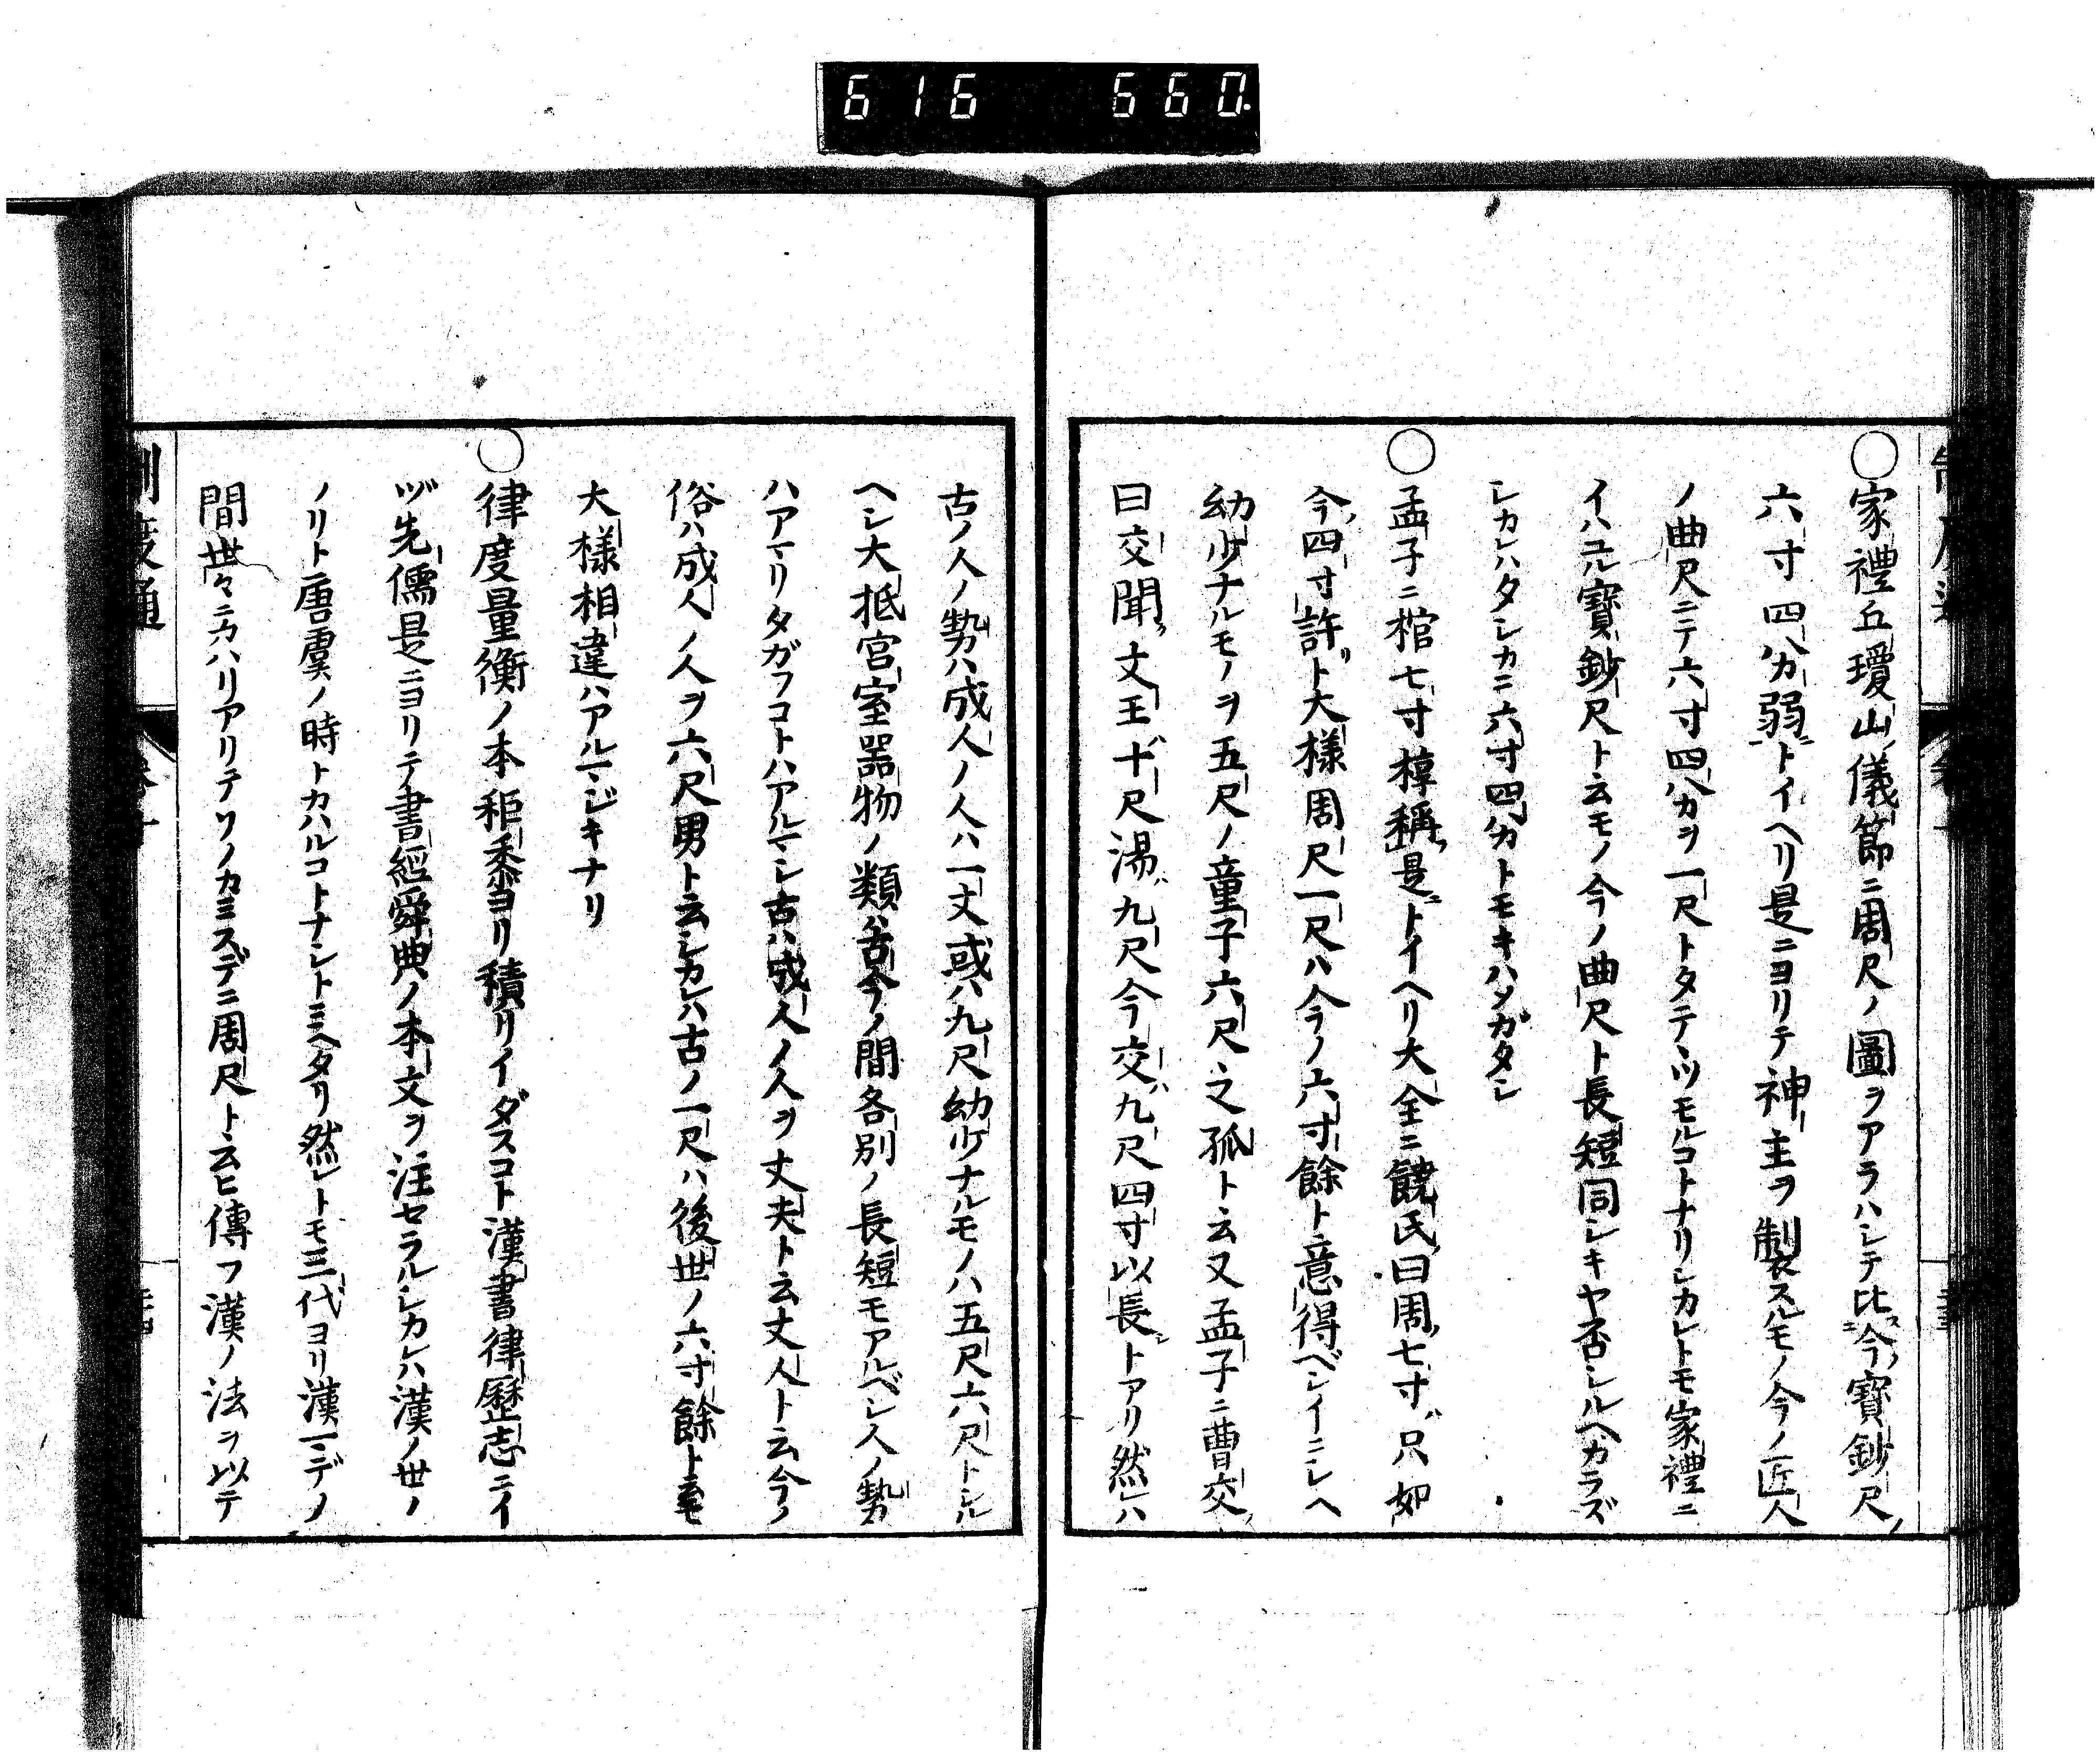 616 660.
○家禮丘瓊山儀節ニ周尺ノ圖ヲアラハシテ比今寶鈔尺
六寸四分弱トイヘリ是ニヨリテ神主ヲ製スルモノ今ノ匠人
ノ曲尺ニテ六寸四分ヲ一尺トタテヽツモルコトナリシカレトモ家禮ニ
イハユル寶鈔尺ト云モノ今ノ曲尺ト長短同シキヤ否シルヘカラズ
シカレハタシカニ六寸四分トモキハメガタシ
○孟子ニ棺七寸椁稱是トイヘリ大全ニ饒氏曰周七寸只如
今四寸許ト大様周尺一尺ハ今ノ六寸餘ト意得ベシイニシヘ
幼少ナルモノヲ五尺ノ童子六尺之孤ト云又孟子ニ曹交
曰交聞文王十尺湯九尺今交九尺四寸以長トアリ然ハ
古ノ人ノ勢ハ成人ノ人ハ一丈或ハ九尺幼少ナルモノハ五尺六尺トシル
ヘシ大抵宮室器物ノ類ハ古今ノ間各別ノ長短モアルベシ人ノ勢
ハアマリタガフコトハアルマシ古ハ成人ノ人ヲ丈夫ト云丈人ト云今ノ
俗ハ成人ノ人ヲ六尺男ト云シカレハ古ノ一尺ハ後世ノ六寸餘ト云モ
大様相違ハアルマジキナリ
○律度量衡ノ本秬黍ヨリ積リイダスコト漢書律歷志ニイ
ヅ先儒是ニヨリテ書經舜典ノ本文ヲ注セラルシカレハ漢ノ世ノ
ノリト唐虞ノ時トカハルコトナシトミヘタリ然レトモ三代ヨリ漢マデノ
間世々ニカハリアリテソノカミスデニ周尺ト云ヒ傳フ漢ノ法ヲ以テ
制度通